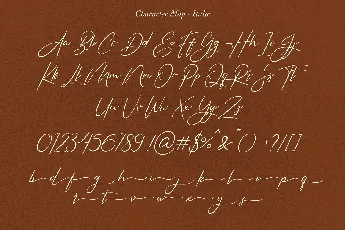 Character Map - Italic
Aa Bb Cc Dd Ee Ff Gg Hh Ii Jj
Kk Ll Mm Nn Oo Pp Qq Rr Ss Tt
Uu Vv Ww Xx Yy Zz
0123456789!@#$%^&*() :?/[]
b d f g h i j k l n o p q
r t u v w x y s